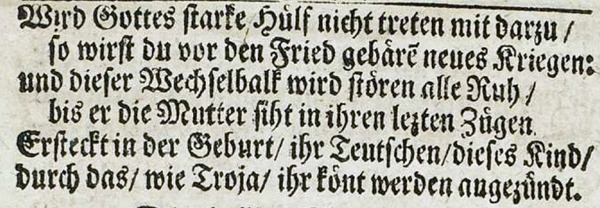 Wird Gottes starke Hülf nicht treten mit darzu /
so wirst du vor den Fried gebärē neues Kriegen:
und dieser Wechselbalk wird stören alle Ruh /
bis er die Mutter siht in ihren lezten Zügen.
Ersteckt in der Geburt / ihr Teutschen / dieses Kind /
durch das / wie Troja / ihr könt werden angezündt.